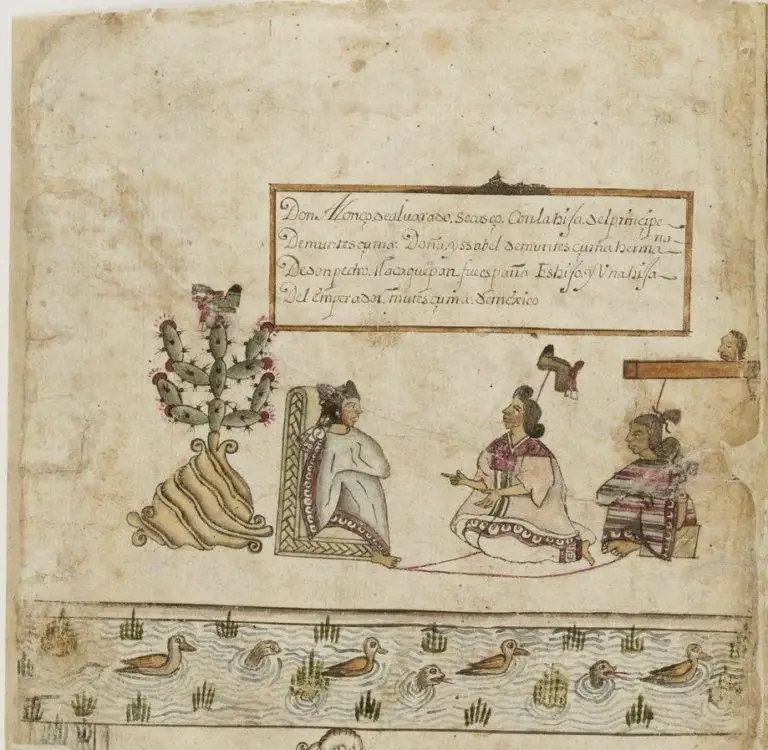 Don Alonço, dealuarado, Secasço, Conlahija delprincipe
Demuntescuma: Doña, yssabel demuntescuma herma
na
Dedon pedro, tlacaquepan, fue españa Eshijo, y Vnahija
Del emperador, mutescuma: demexico